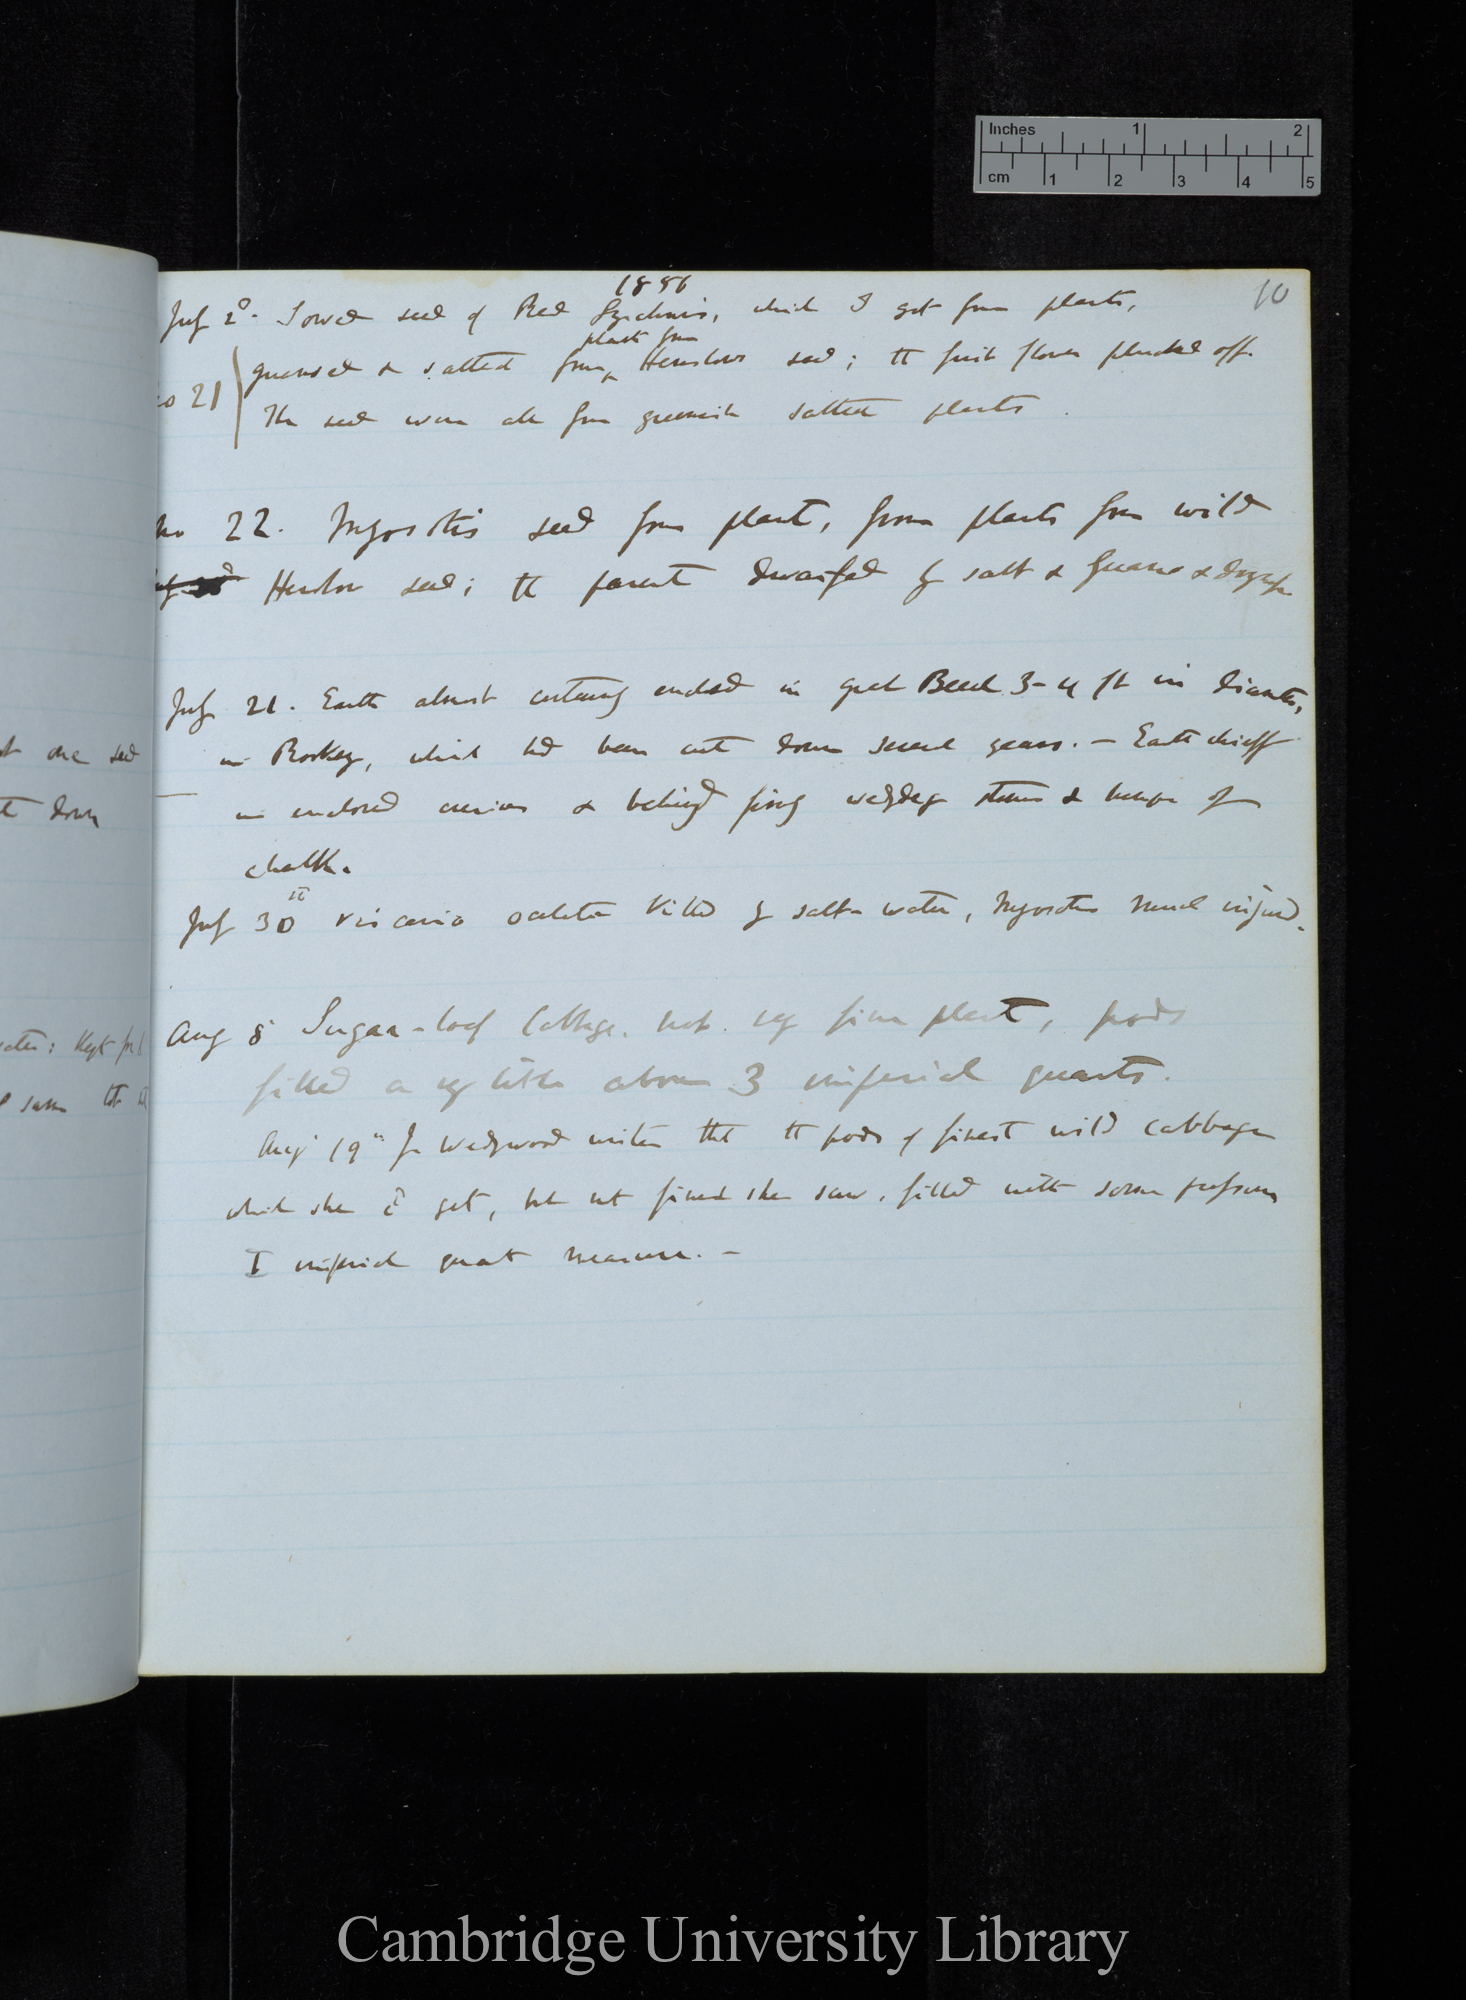 Inches 1 2
cm 1 2 3 4 5
10
1856
July 2d. Sowed seed of Red Lychnis, which I got from plants,
plants from
guanoed & salted from Henslows seed; the first flower plucked off.
No 21
The seed were all from greenish salted plants.
No 22. Myosotis seed from plants, from plants from wild
Henslow seed; the parents dwarfed by salt & Guano &
July 21. Earth almost certainly enclosed in great Beech 3-4 ft in diameter,
in Rookery, which had been cut down several years. — Earth chiefly
in enclosed crevices & behind firmly wedged stones & lumps of
chalk.
July 30th Viscaria oculata killed by salt water, Myosotis much injured.
Aug 8 Sugar-loaf Cabbage. not very fine plant, pods
filled a very little above 3 imperial quarts.
Aug 19th Wedgwood writes that the pods of finest wild cabbage
which she cd get, but not finest she saw, filled with some pressure
I imperial quart measure. —
one seed
down
Kept
same
Cambridge University Library